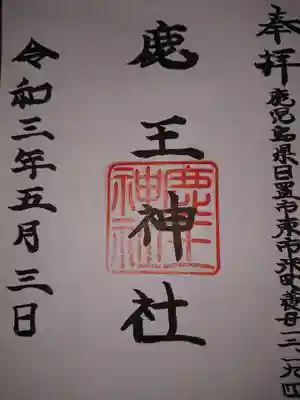 奉拝
鹿児島県日置市東市来町養母一三一九四
鹿王神社
鹿王神社
令和三年五月三日